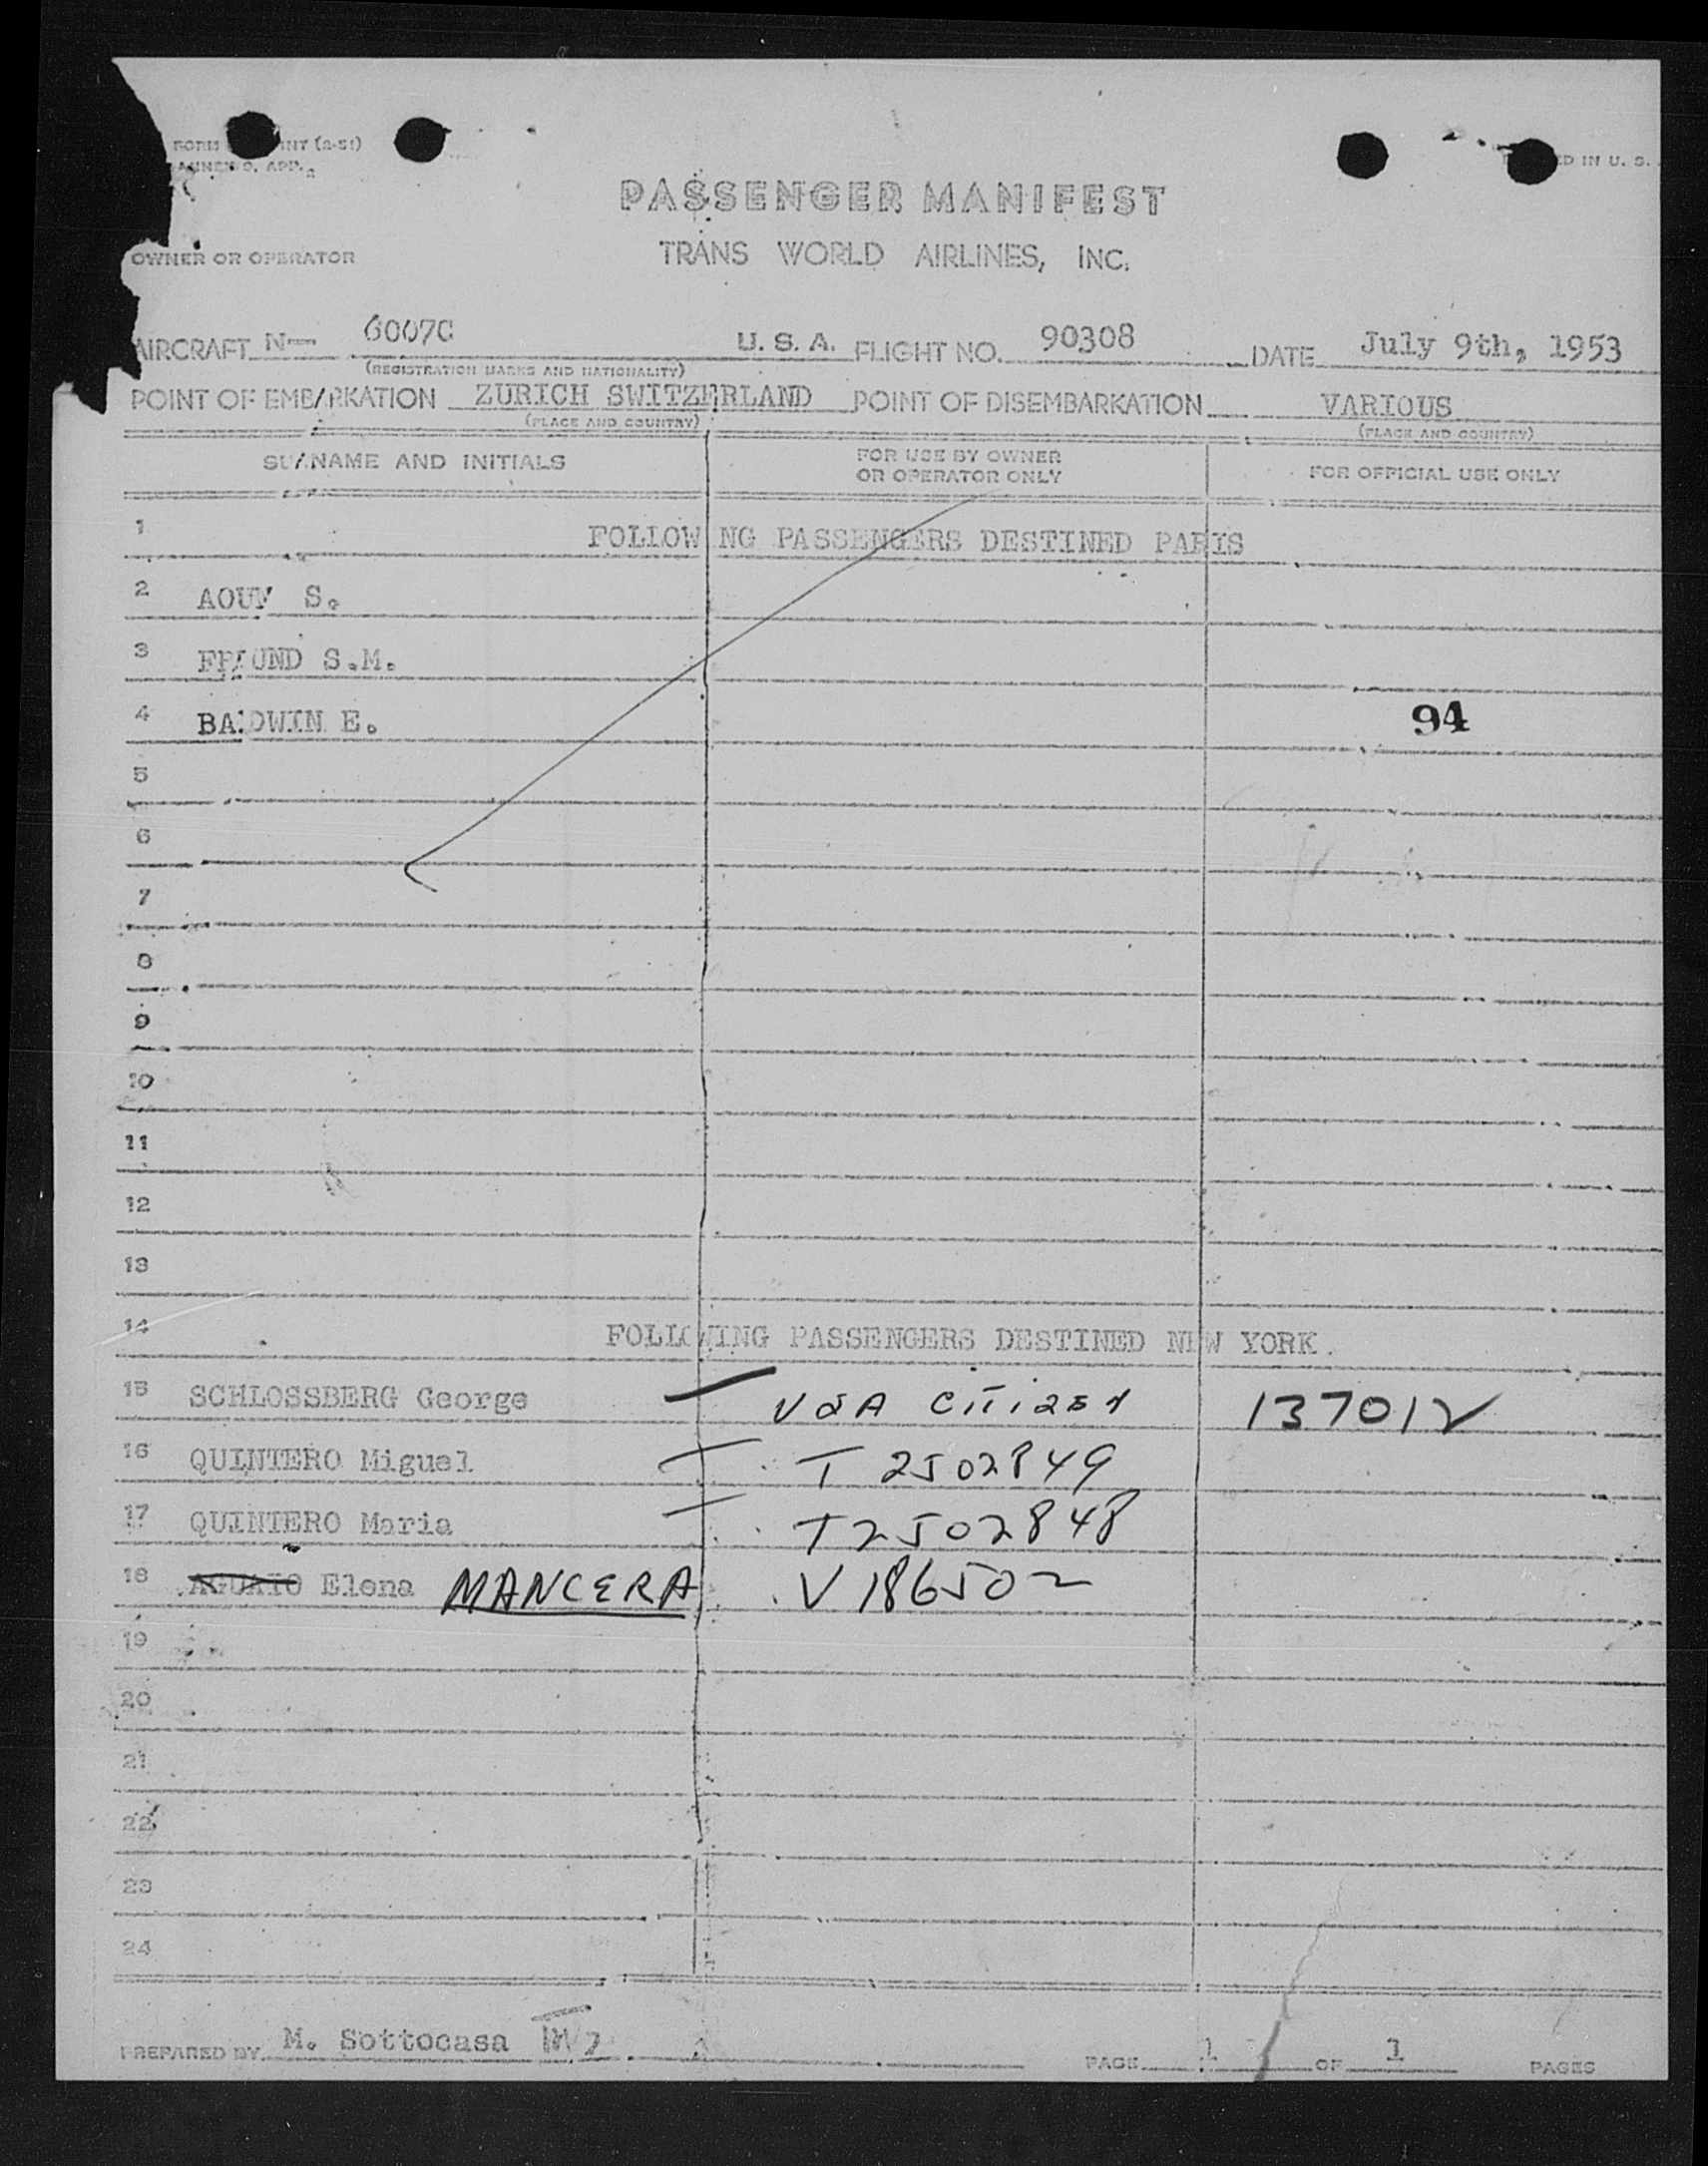 PASSENGER MANIFEST
TRANS WORLD AIRLINES, INC.
OWNER OR OPERATOR
AIRCRAFT N— 6007C U. S. A. FLIGHT NO. 90308 DATE July 9th, 1953
(REGISTRATION MARKS AND NATIONALITY)
POINT OF EMBARKATION ZURICH SWITZERLAND POINT OF DISEMBARKATION VARIOUS
(PLACE AND COUNTRY) (PLACE AND COUNTRY)
SURNAME AND INITIALS FOR USE BY OWNER OR OPERATOR ONLY FOR OFFICIAL USE ONLY
1 FOLLOWING PASSENGERS DESTINED PARIS
2 S.
3 FREUND S.M.
4 BALDWIN E. 94
5
6
7
8
9
10
11
12
13
14 FOLLOWING PASSENGERS DESTINED NEW YORK.
15 SCHLOSSBERG George USA CITIZEN 137012
16 QUINTERO Miguel T 2502849
17 QUINTERO Maria T2502848
18 Elena MANCERA V 186502
19
20
21
22
23
24
PREPARED BY M. Sottocasa PAGE 1 OF 1 PAGES